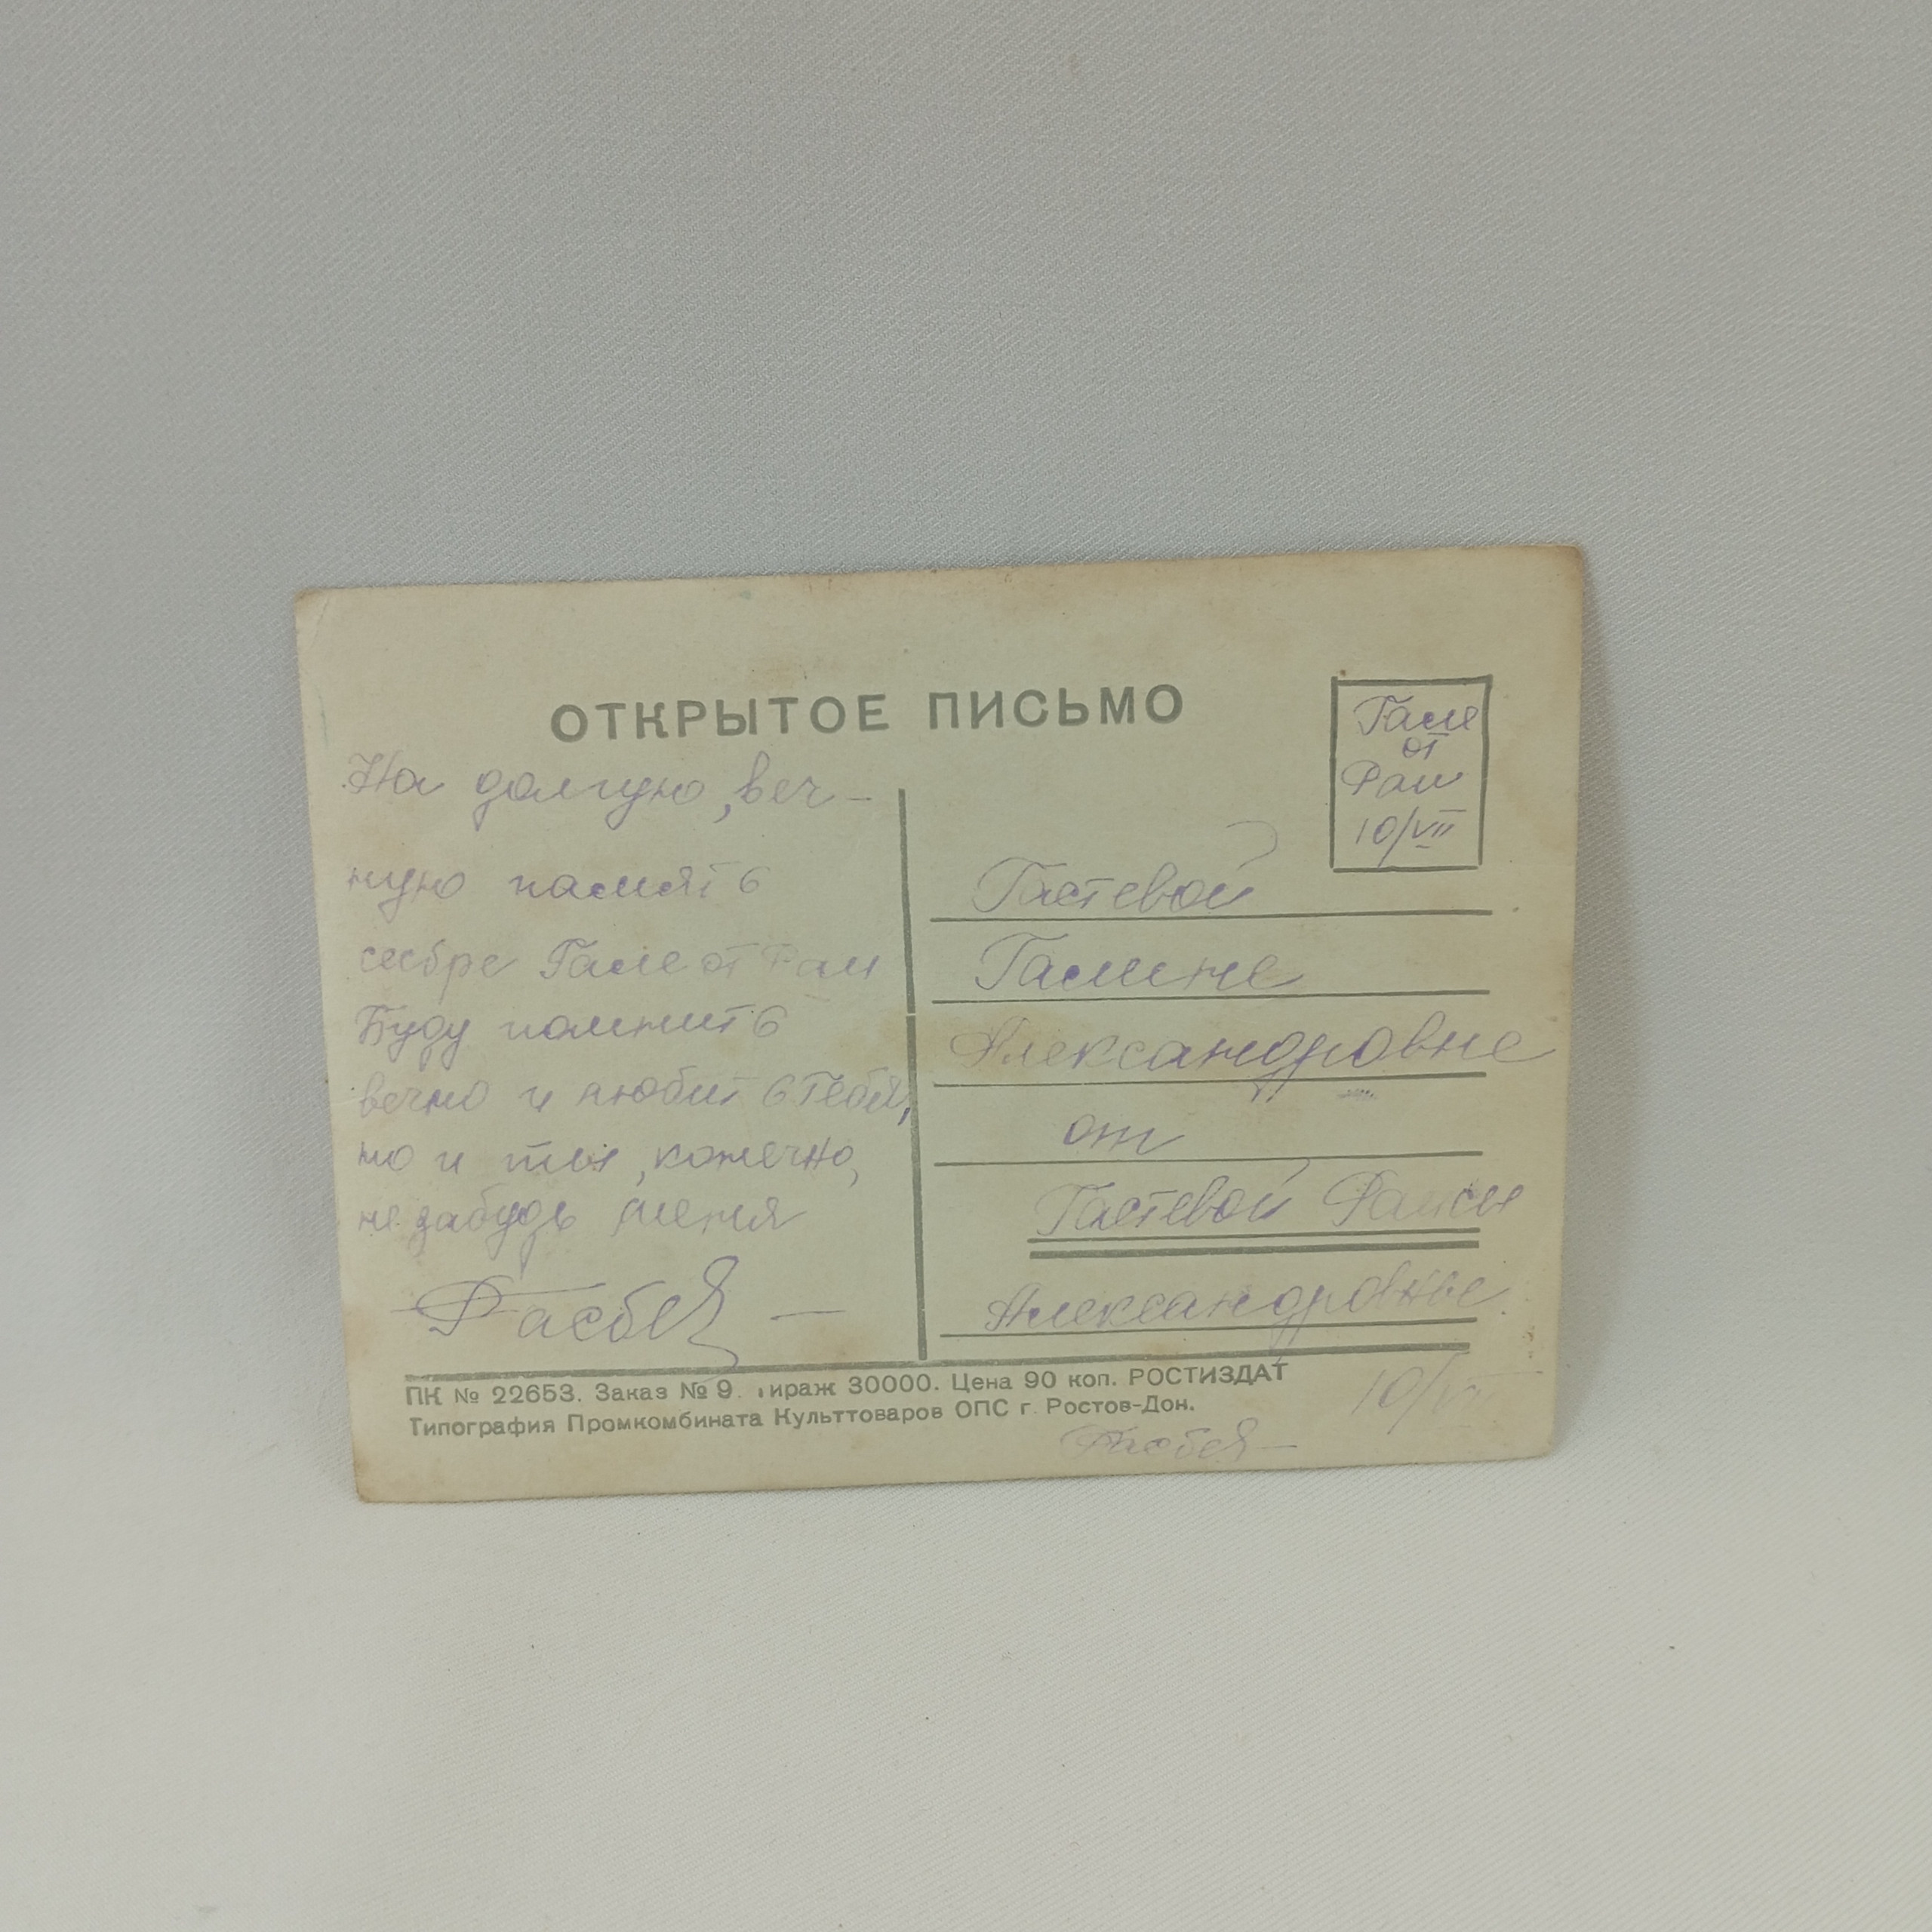 ОТКРЫТОЕ ПИСЬМО
Гале
от
Раи
10/VII
На долгую, веч-
ную память
сестре Гале от Раи
Буду помнить
вечно и любить тебя,
но и ты, конечно,
не забудь меня
Гастевой
Галине
Александровне
от
Гастевой Раисы
Александровны
ПК № 22653. Заказ № 9. тираж 30000. Цена 90 коп. РОСТИЗДАТ
Типография Промкомбината Культтоваров ОПС г. Ростов-Дон.
10/VII